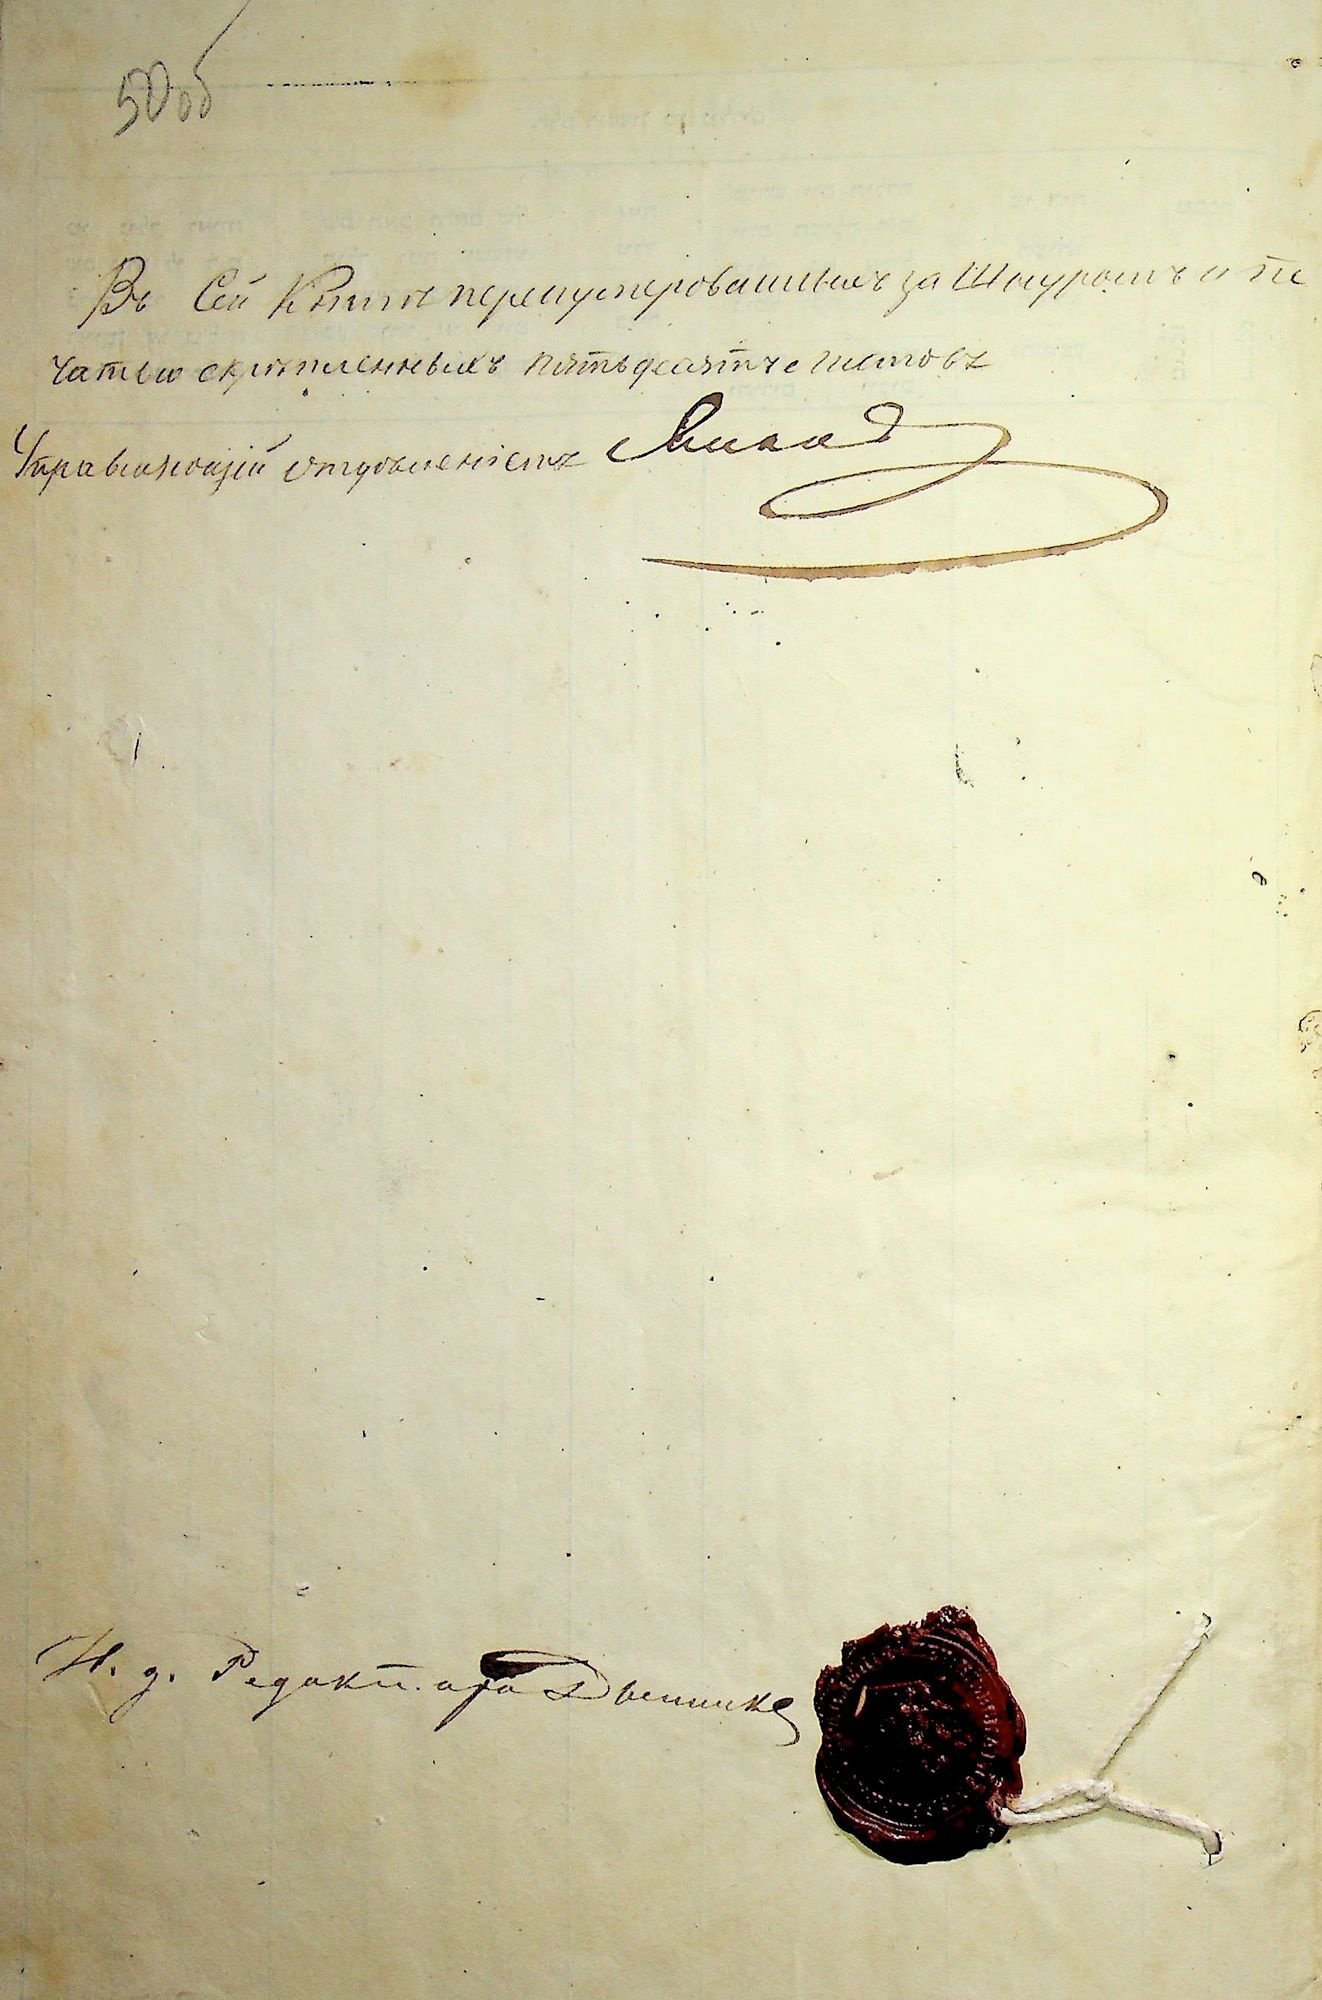 50об
Въ Сей Книгѣ перенумерованныхъ за Шнуромъ и пе
чатью скрѣпленныхъ пятьдесятъ листовъ
Управляющій отдѣленіемъ
И. д. Редактора